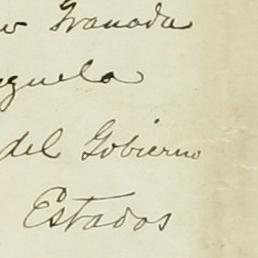 Granada
del Gobierno
Estados